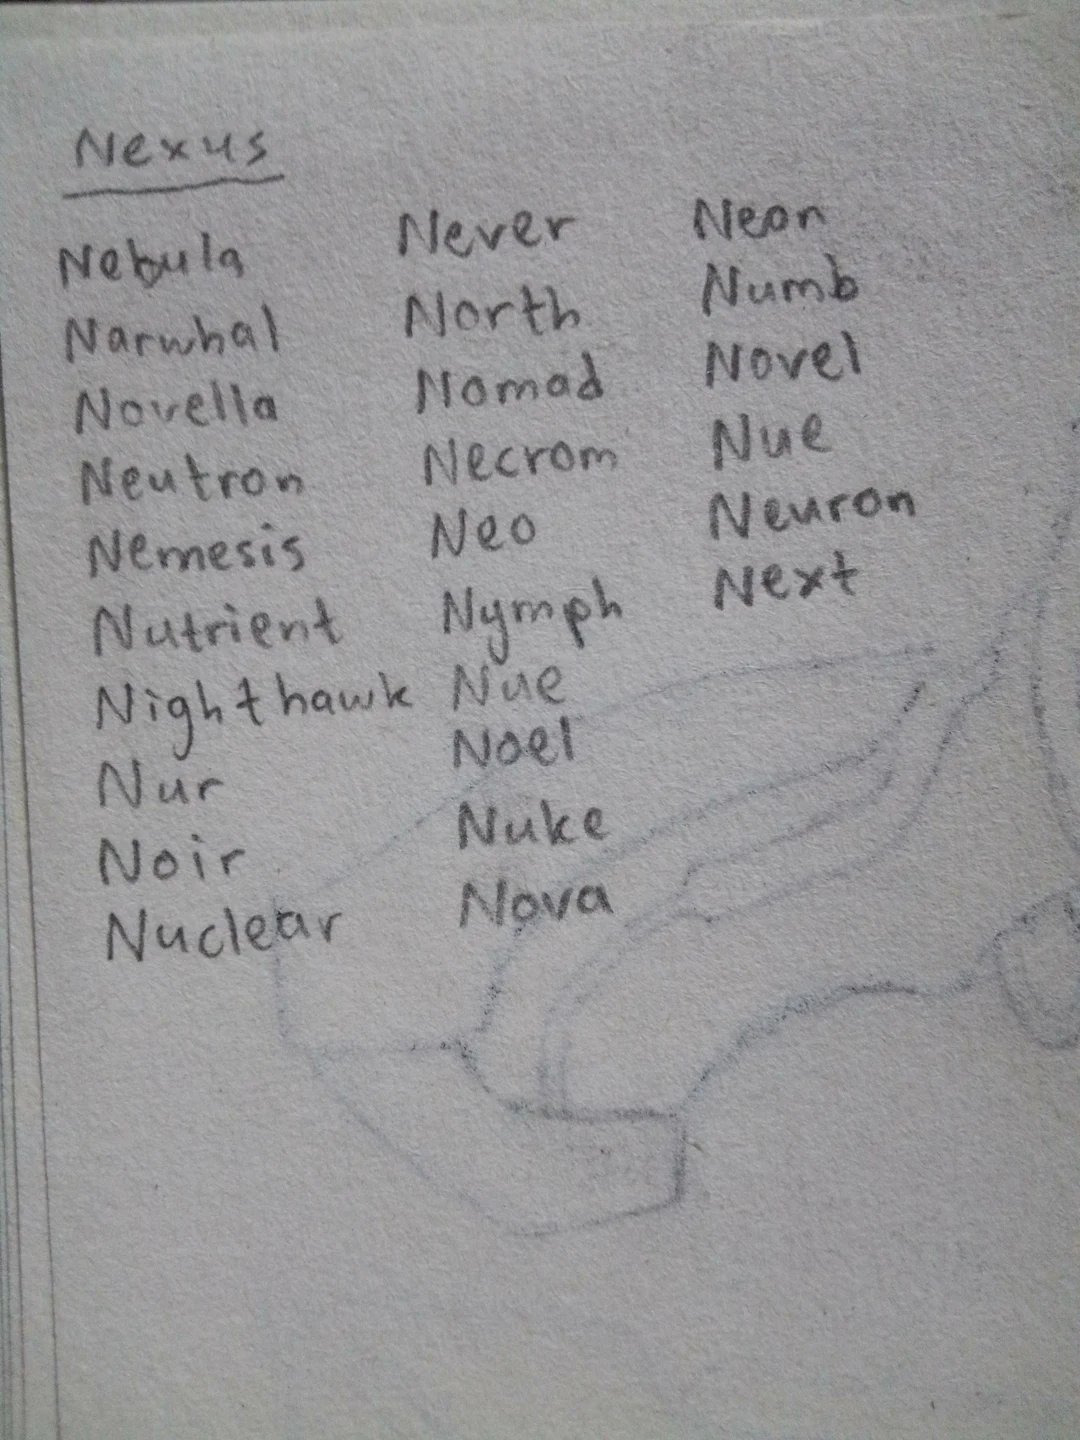 Nexus
Nebula
Narwhal
Novella
Neutron
Nemesis
Nutrient
Nighthawk
Nur
Noir
Nuclear
Never
North
Nomad
Necrom
Neo
Nymph
Nue
Noel
Nuke
Nova
Neon
Numb
Novel
Nue
Neuron
Next